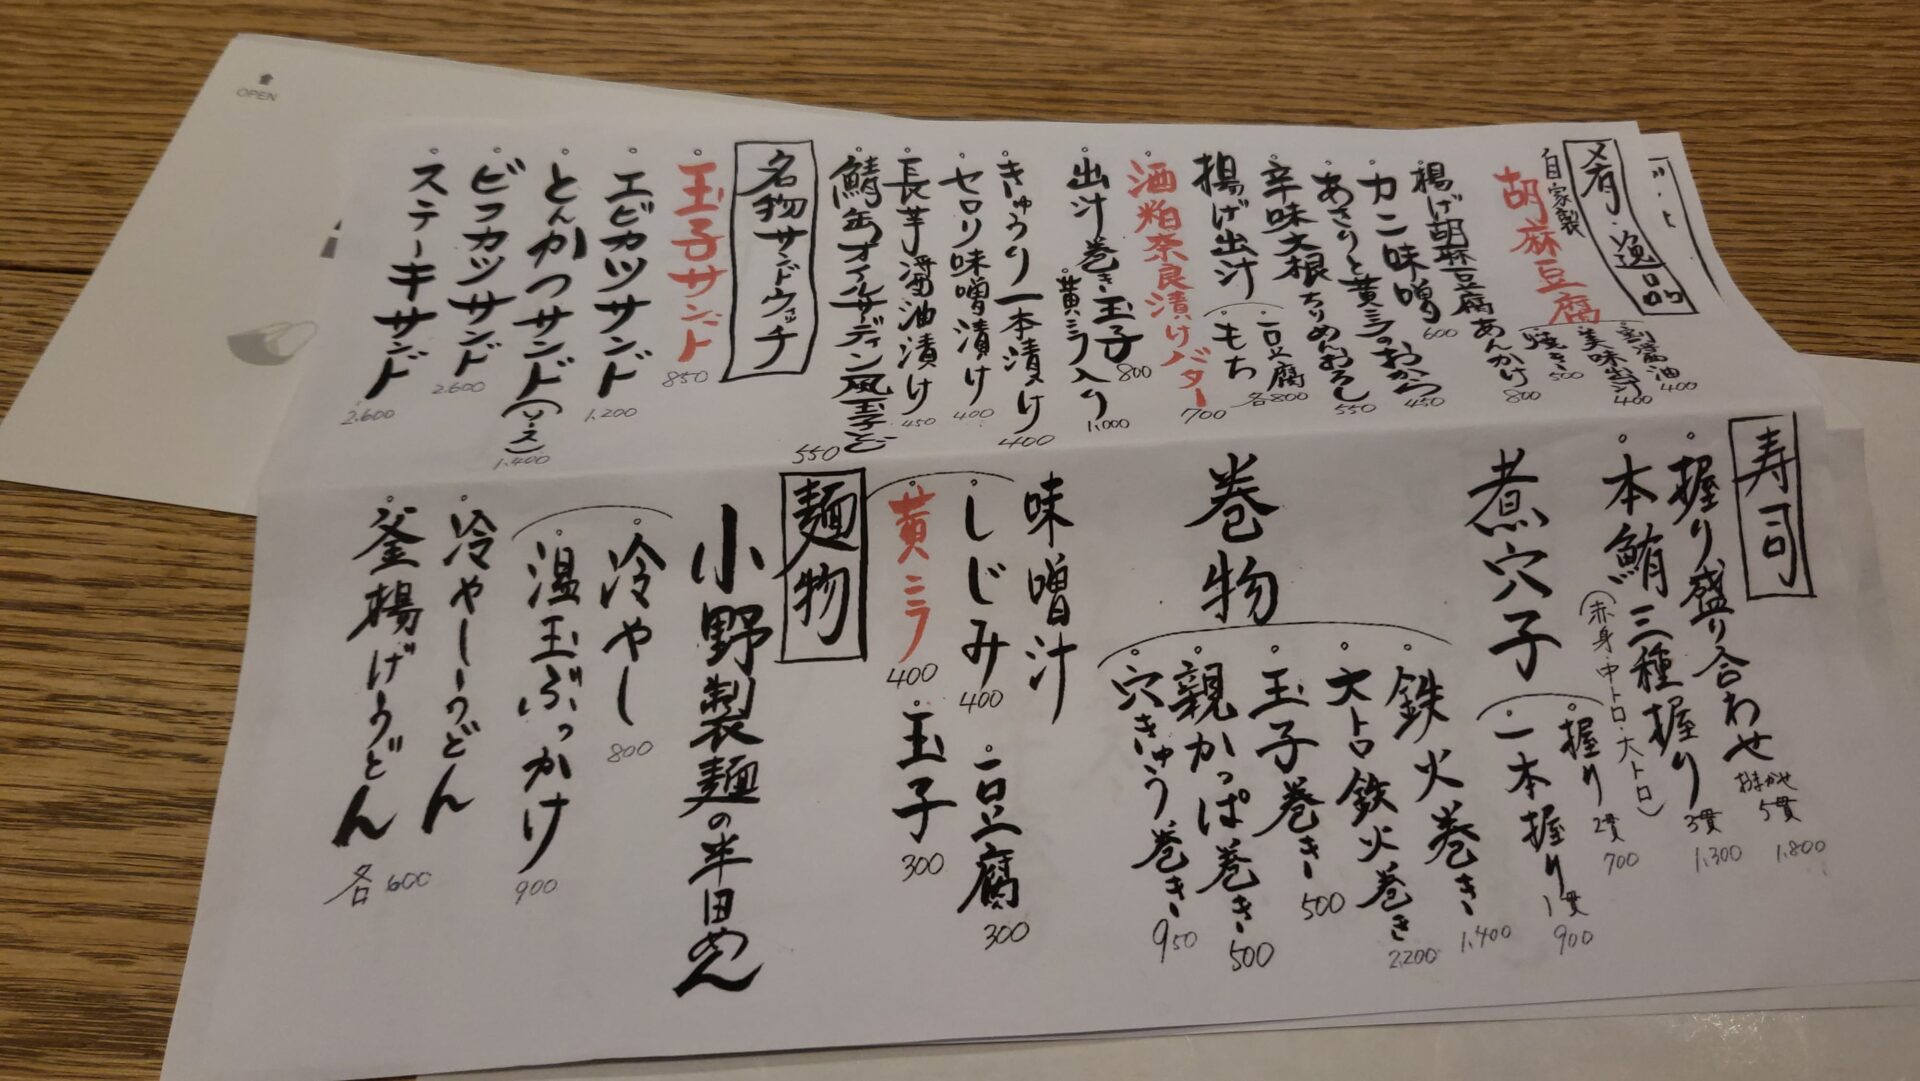 OPEN
肴・逸品
自家製
胡麻豆腐
割醤油 400
美味出汁 400
焼き 500
揚げ胡麻豆腐あんかけ 800
カニ味噌 600
あさりと黄ニラのおから 450
辛味大根ちりめんおろし 550
揚げ出汁
豆腐
もち
各800
酒粕奈良漬けバター 700
出汁巻き玉子 800
黄ニラ入り 1,000
きゅうり一本漬け 400
セロリ味噌漬け 400
長芋醤油漬け 450
鯖缶オイルサーディン風玉子とじ 550
名物サンドウィッチ
玉子サンド 850
エビカツサンド 1,200
とんかつサンド(ソース) 1,400
ビフカツサンド 2,600
ステーキサンド 2,600
寿司
握り盛り合わせ おまかせ5貫 1,800
本鮪三種握り 3貫 1,300
(赤身・中トロ・大トロ)
煮穴子
握り 2貫 700
一本握り 1貫 900
巻物
鉄火巻き 1,400
大トロ鉄火巻き 2,200
玉子巻き 500
親かっぱ巻き 500
穴きゅう巻き 950
味噌汁
しじみ 400
豆腐 300
黄ニラ 400
玉子 300
麺物
小野製麺の半田めん
冷やし 800
温玉ぶっかけ 900
冷やしうどん
釜揚げうどん
各600